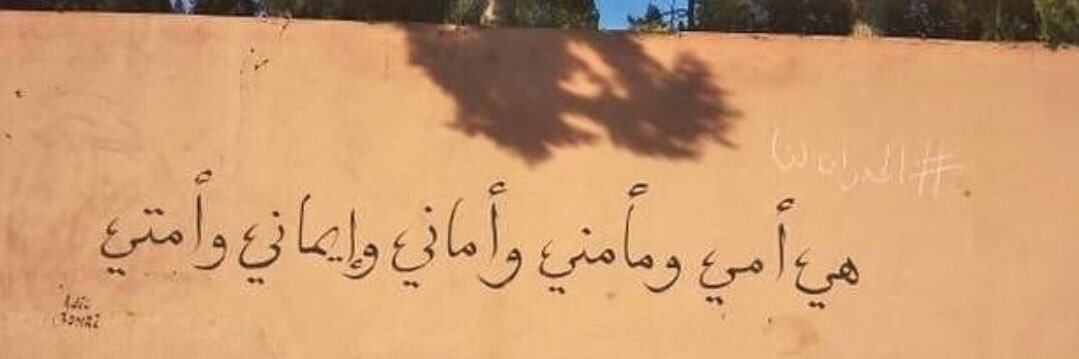 #الجدران لنا
هي أمي ومأمني وأماني وإيماني وأمتي